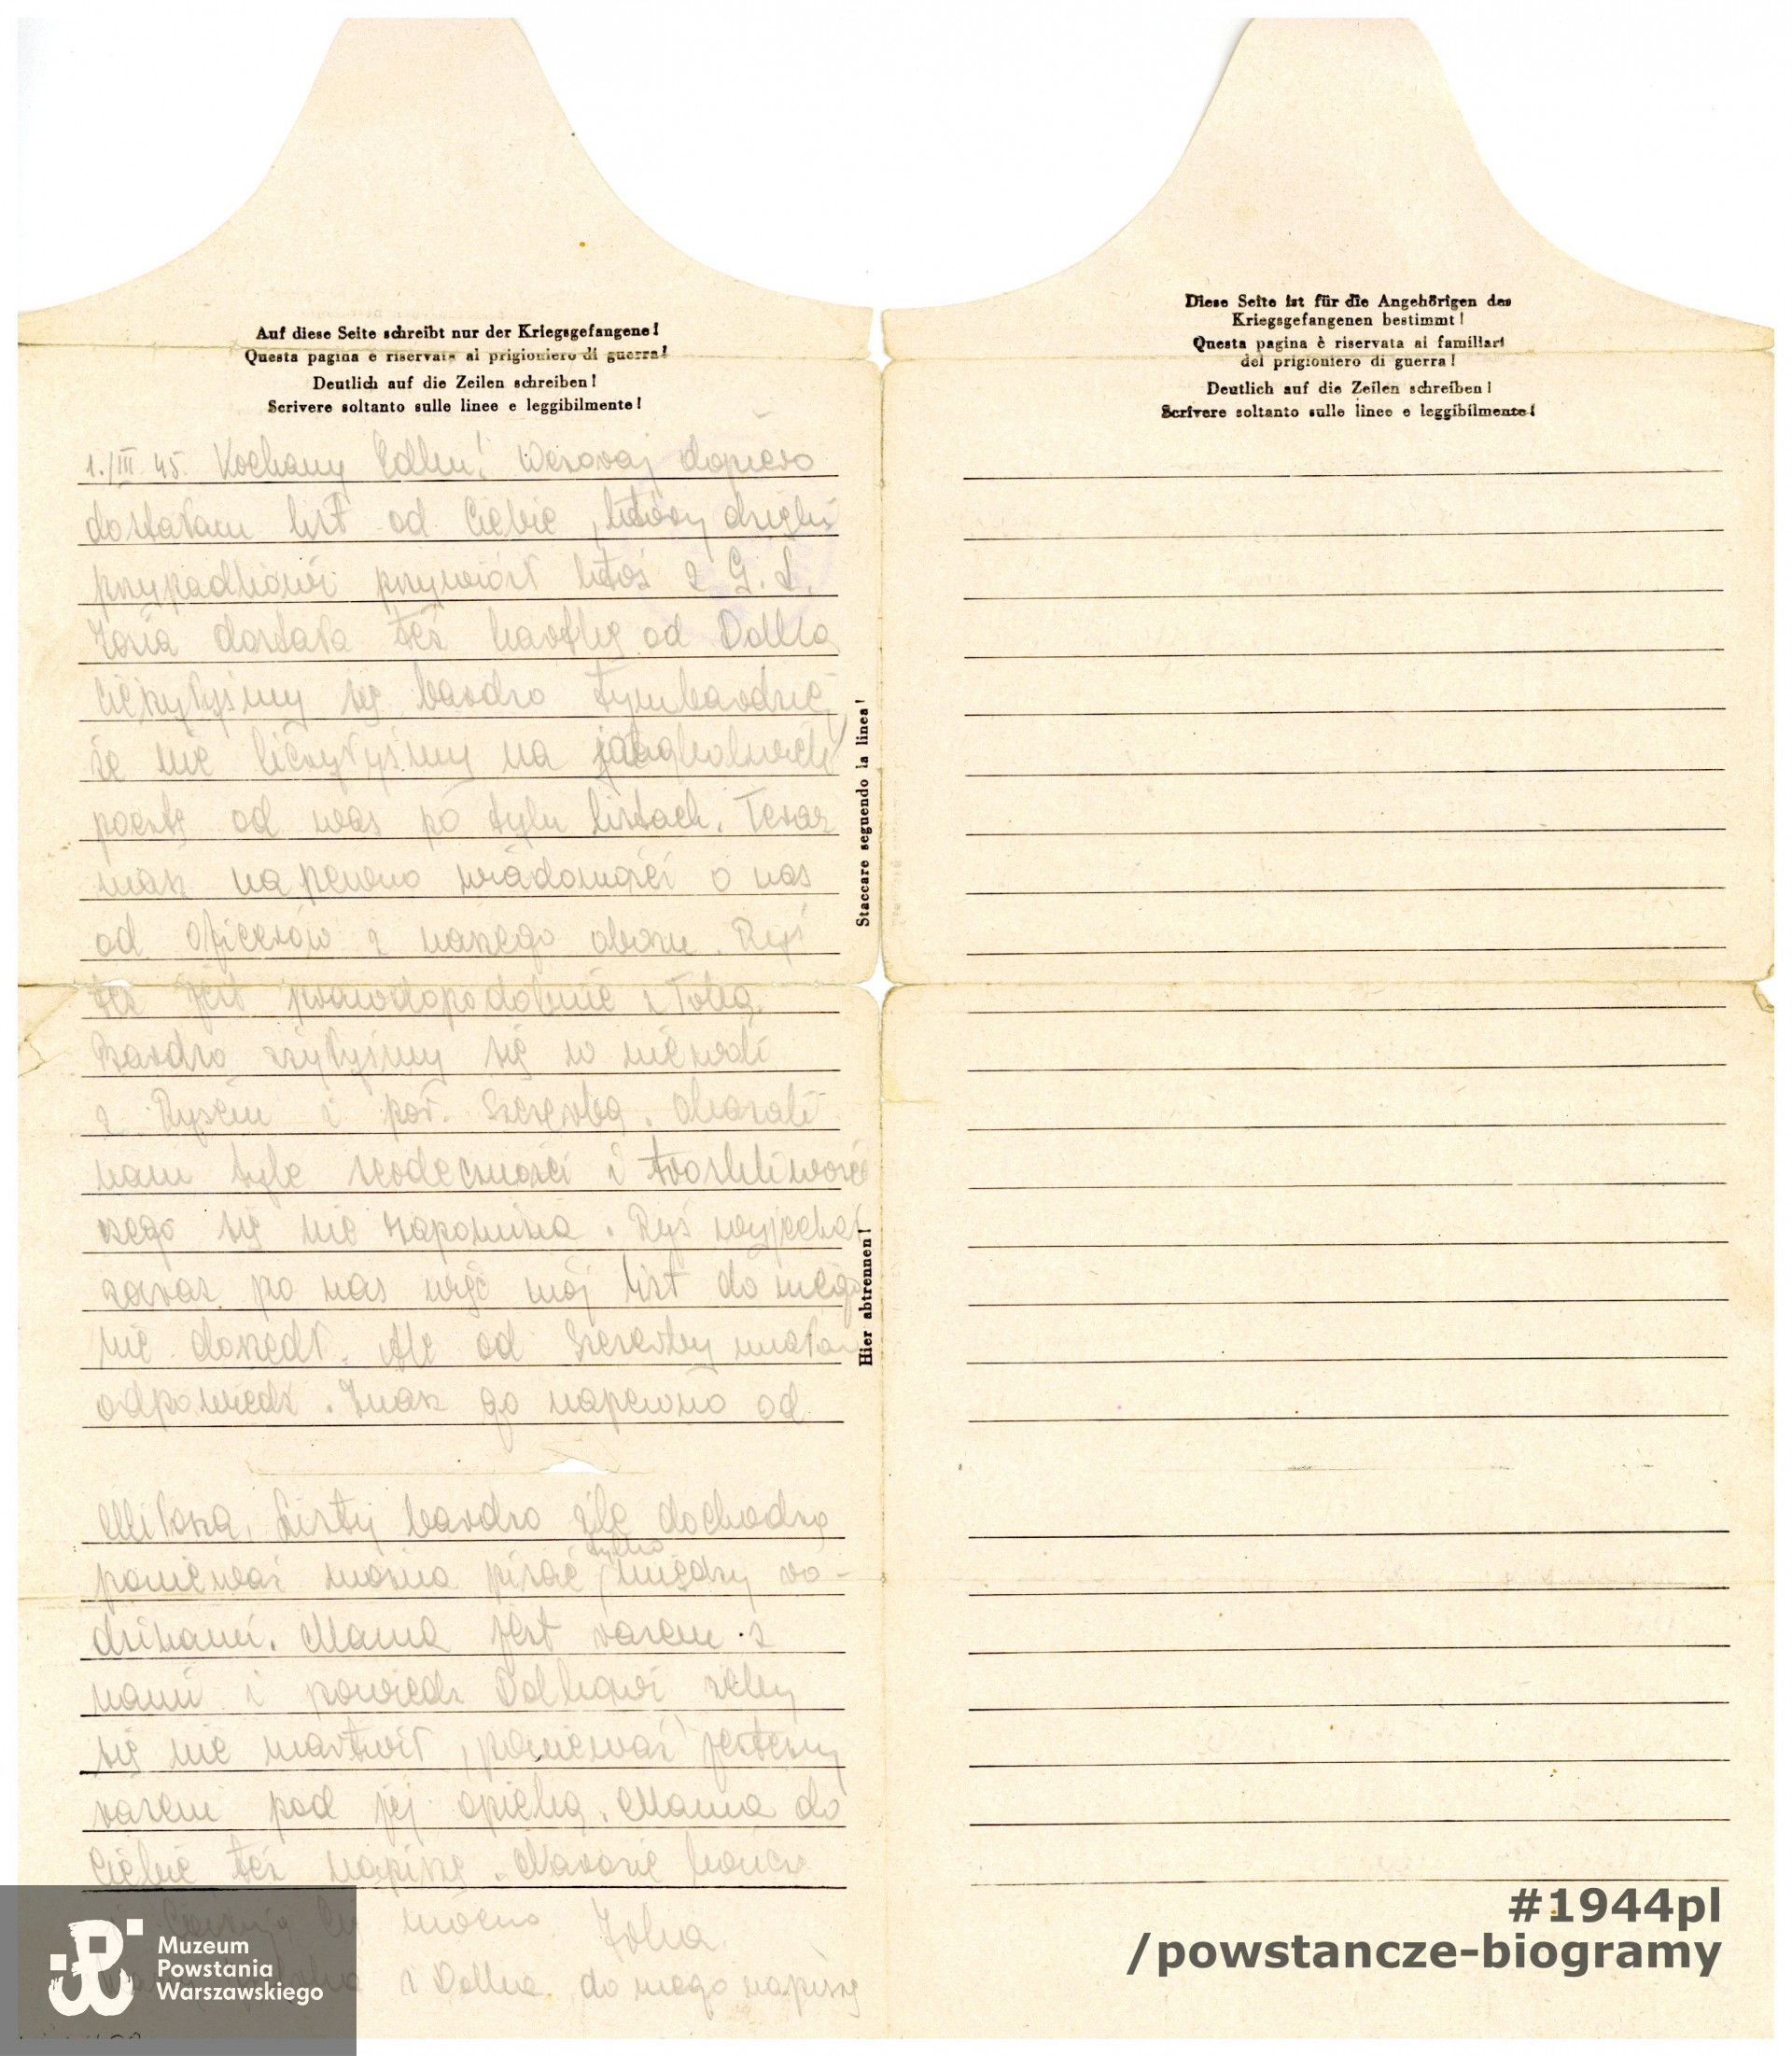 Auf diese Seite schreibt nur der Kriegsgefangene!
Questa pagina è riservata al prigioniero di guerra!
Deutlich auf die Zeilen schreiben!
Scrivere soltanto sulle linee e leggibilmente!
1./III 45. Kochany Edku! Wczoraj dopiero
dostałam list od Ciebie, który dzięki
przypadkowi przywiózł ktoś z G. L.
Zosia dostała też kartkę od Dolka
Cieszyłyśmy się bardzo tymbardziej
że nie liczyłyśmy na jakąkolwiek
pocztę od was po tylu listach. Teraz
masz na pewno wiadomości o nas
od oficerów z naszego obozu. Ryś
też jest prawdopodobnie z Tobą.
Bardzo zżyłyśmy się w niewoli
z Rysiem i por. Szczerbą. Okazali
nam tyle serdeczności i troskliwości
czego się nie zapomina. Ryś wyjechał
zaraz po nas więc mój list do niego
nie doszedł. Ale od Szczerby miałam
odpowiedź. Znasz go napewno od
Miłosza. Listy bardzo źle dochodzą
ponieważ można pisać tylko między ro-
dzinami. Mama jest razem z
nami i powiedz Dolkowi żeby
się nie martwił, ponieważ jesteśmy
razem pod jej opieką. Mama do
Ciebie też napisze. Narazie kończę
mocno Zoha
i Dolka do niego napiszę
Staccare seguendo la linea!
Hier abtrennen!
Diese Seite ist für die Angehörigen des
Kriegsgefangenen bestimmt!
Questa pagina è riservata ai familiari
del prigioniero di guerra!
Deutlich auf die Zeilen schreiben!
Scrivere soltanto sulle linee e leggibilmente!
Muzeum
Powstania
Warszawskiego
#1944pl
/powstancze-biogramy